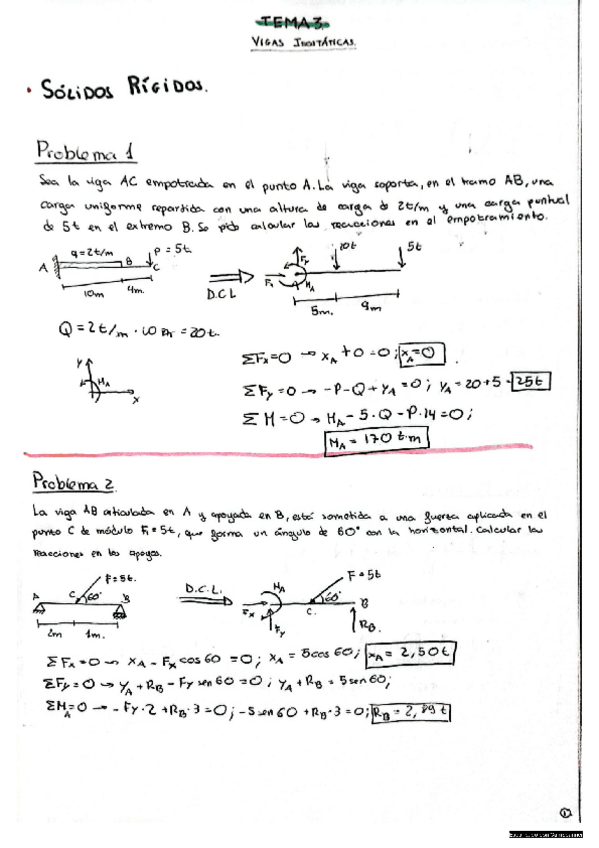 TEMA 3
VIGAS ISOSTÁTICAS.
· SÓLIDOS RÍGIDOS.
Problema 1
Sea la viga AC empotrada en el punto A. La viga soporta, en el tramo AB, una
carga uniforme repartida con una altura de carga de 2t/m y una carga puntual
de 5t en el extremo B. Se pide calcular las reacciones en el empotramiento.
q = 2t/m P = 5t
A B C
10m 4m.
D.C.L
Fx Fy MA 10t 5t
5m. 9m
Q = 2t/m · 10 m = 20t.
Y MA X
ΣFx=0 → xA + 0 = 0; xA=0
ΣFy=0 → -P-Q+yA=0; yA=20+5=25t
ΣM=0 → MA-5·Q-P·14=0;
MA = 170 t·m
Problema 2
La viga AB articulada en A y apoyada en B, está sometida a una fuerza aplicada en el
punto C de módulo F=5t, que forma un ángulo de 60° con la horizontal. Calcular las
reacciones en los apoyos.
A C F=5t. 60° B
2m 1m.
D.C.L.
MA F=5t Fx Fy C. 60° B RB.
ΣFx=0 → xA - Fx cos 60 = 0; xA = 5cos 60; xA = 2,50t
ΣFy=0 → yA + RB - Fy sen 60 = 0; yA + RB = 5 sen 60;
ΣMA=0 → -Fy·2 + RB·3 = 0; -5 sen 60 + RB·3 = 0; RB = 2,89t